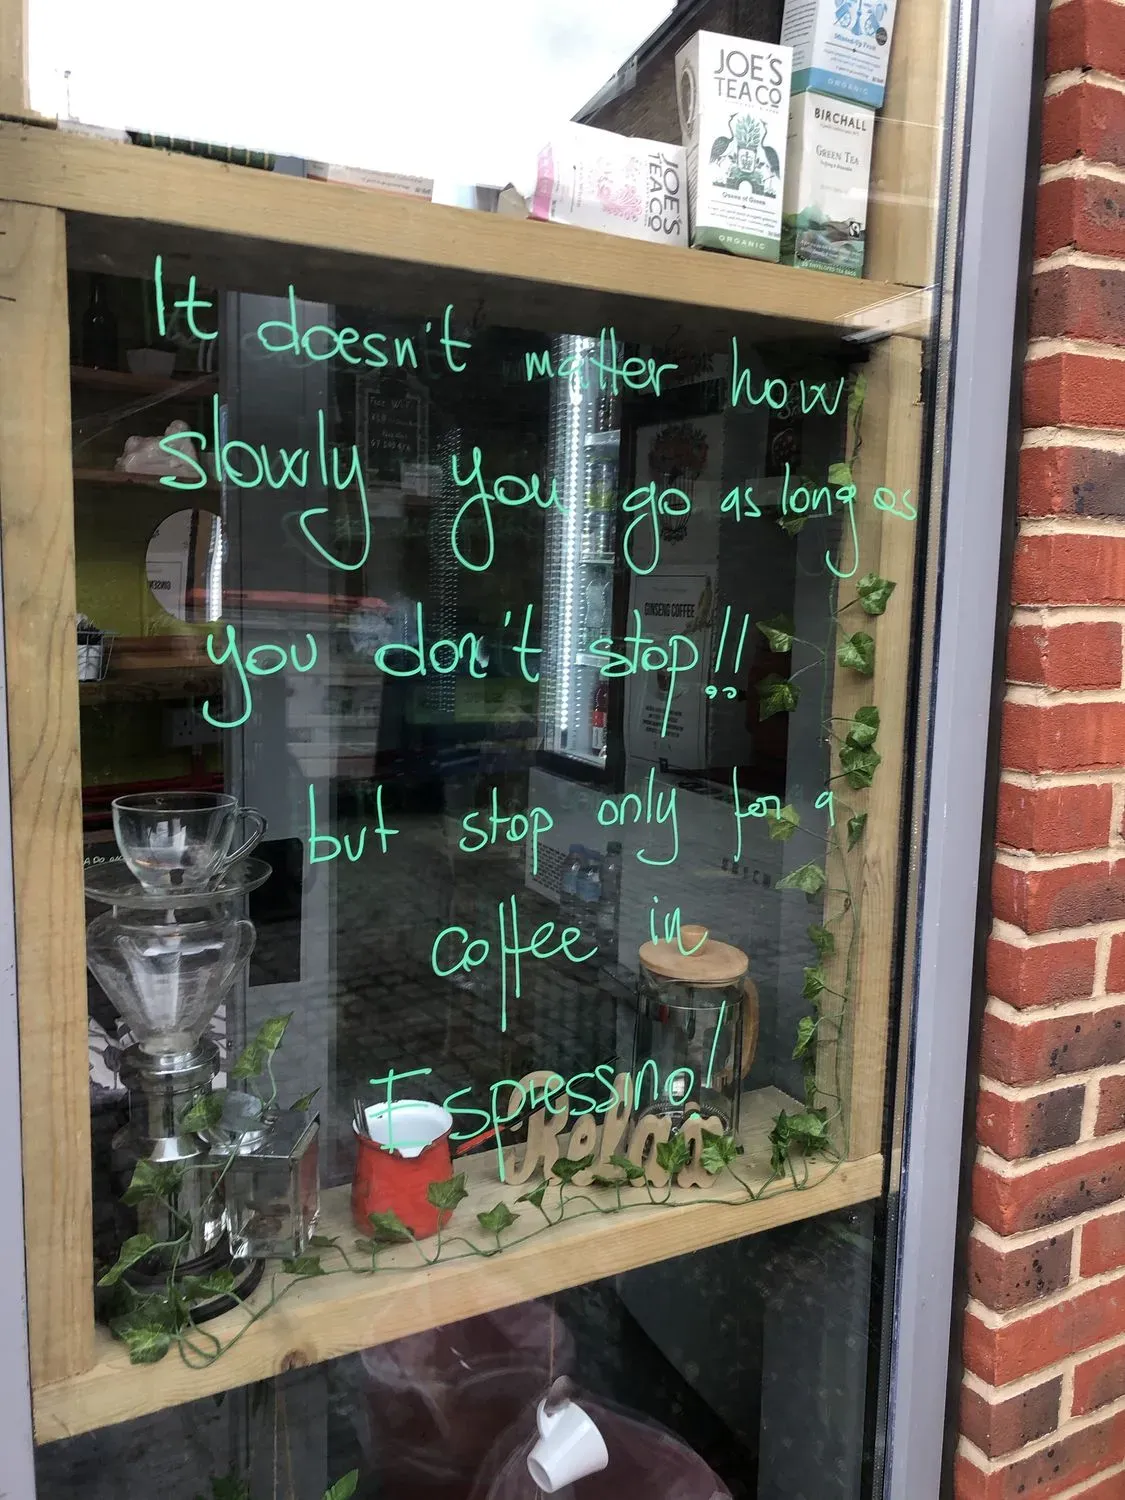 JOE'S
TEA CO
Queens of Green
ORGANIC
ORGANIC
BIRCHALL
GREEN TEA
JOE'S
TEA CO
It doesn't matter how
slowly you go as long as
you don't stop!!
but stop only for a
coffee in
Espressino!
GINSENG COFFEE
Relax